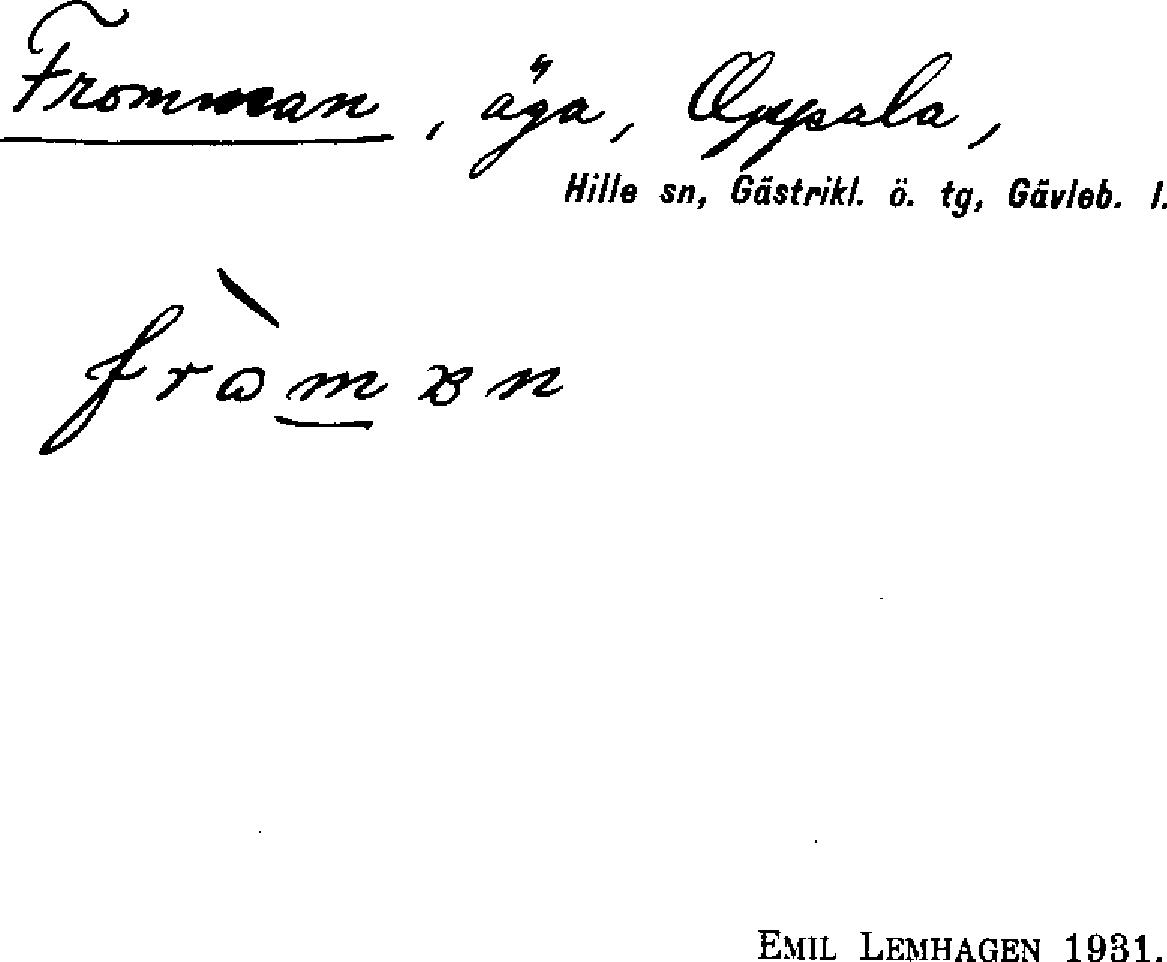 Fromman, äga, Oppala,
Hille sn, Gästrikl. ö. tg, Gävleb. l.
EMIL LEMHAGEN 1931.